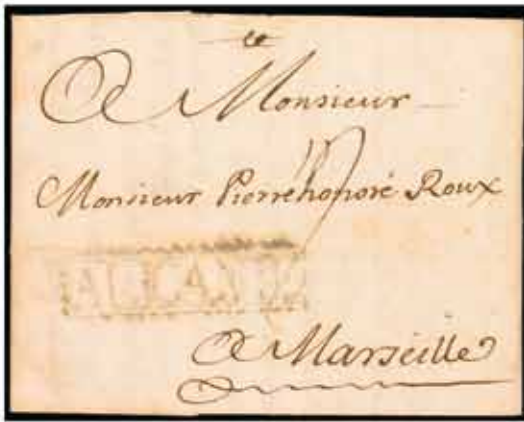 A Monsieur
Monsieur Pierrehonoré Roux
A Marseille